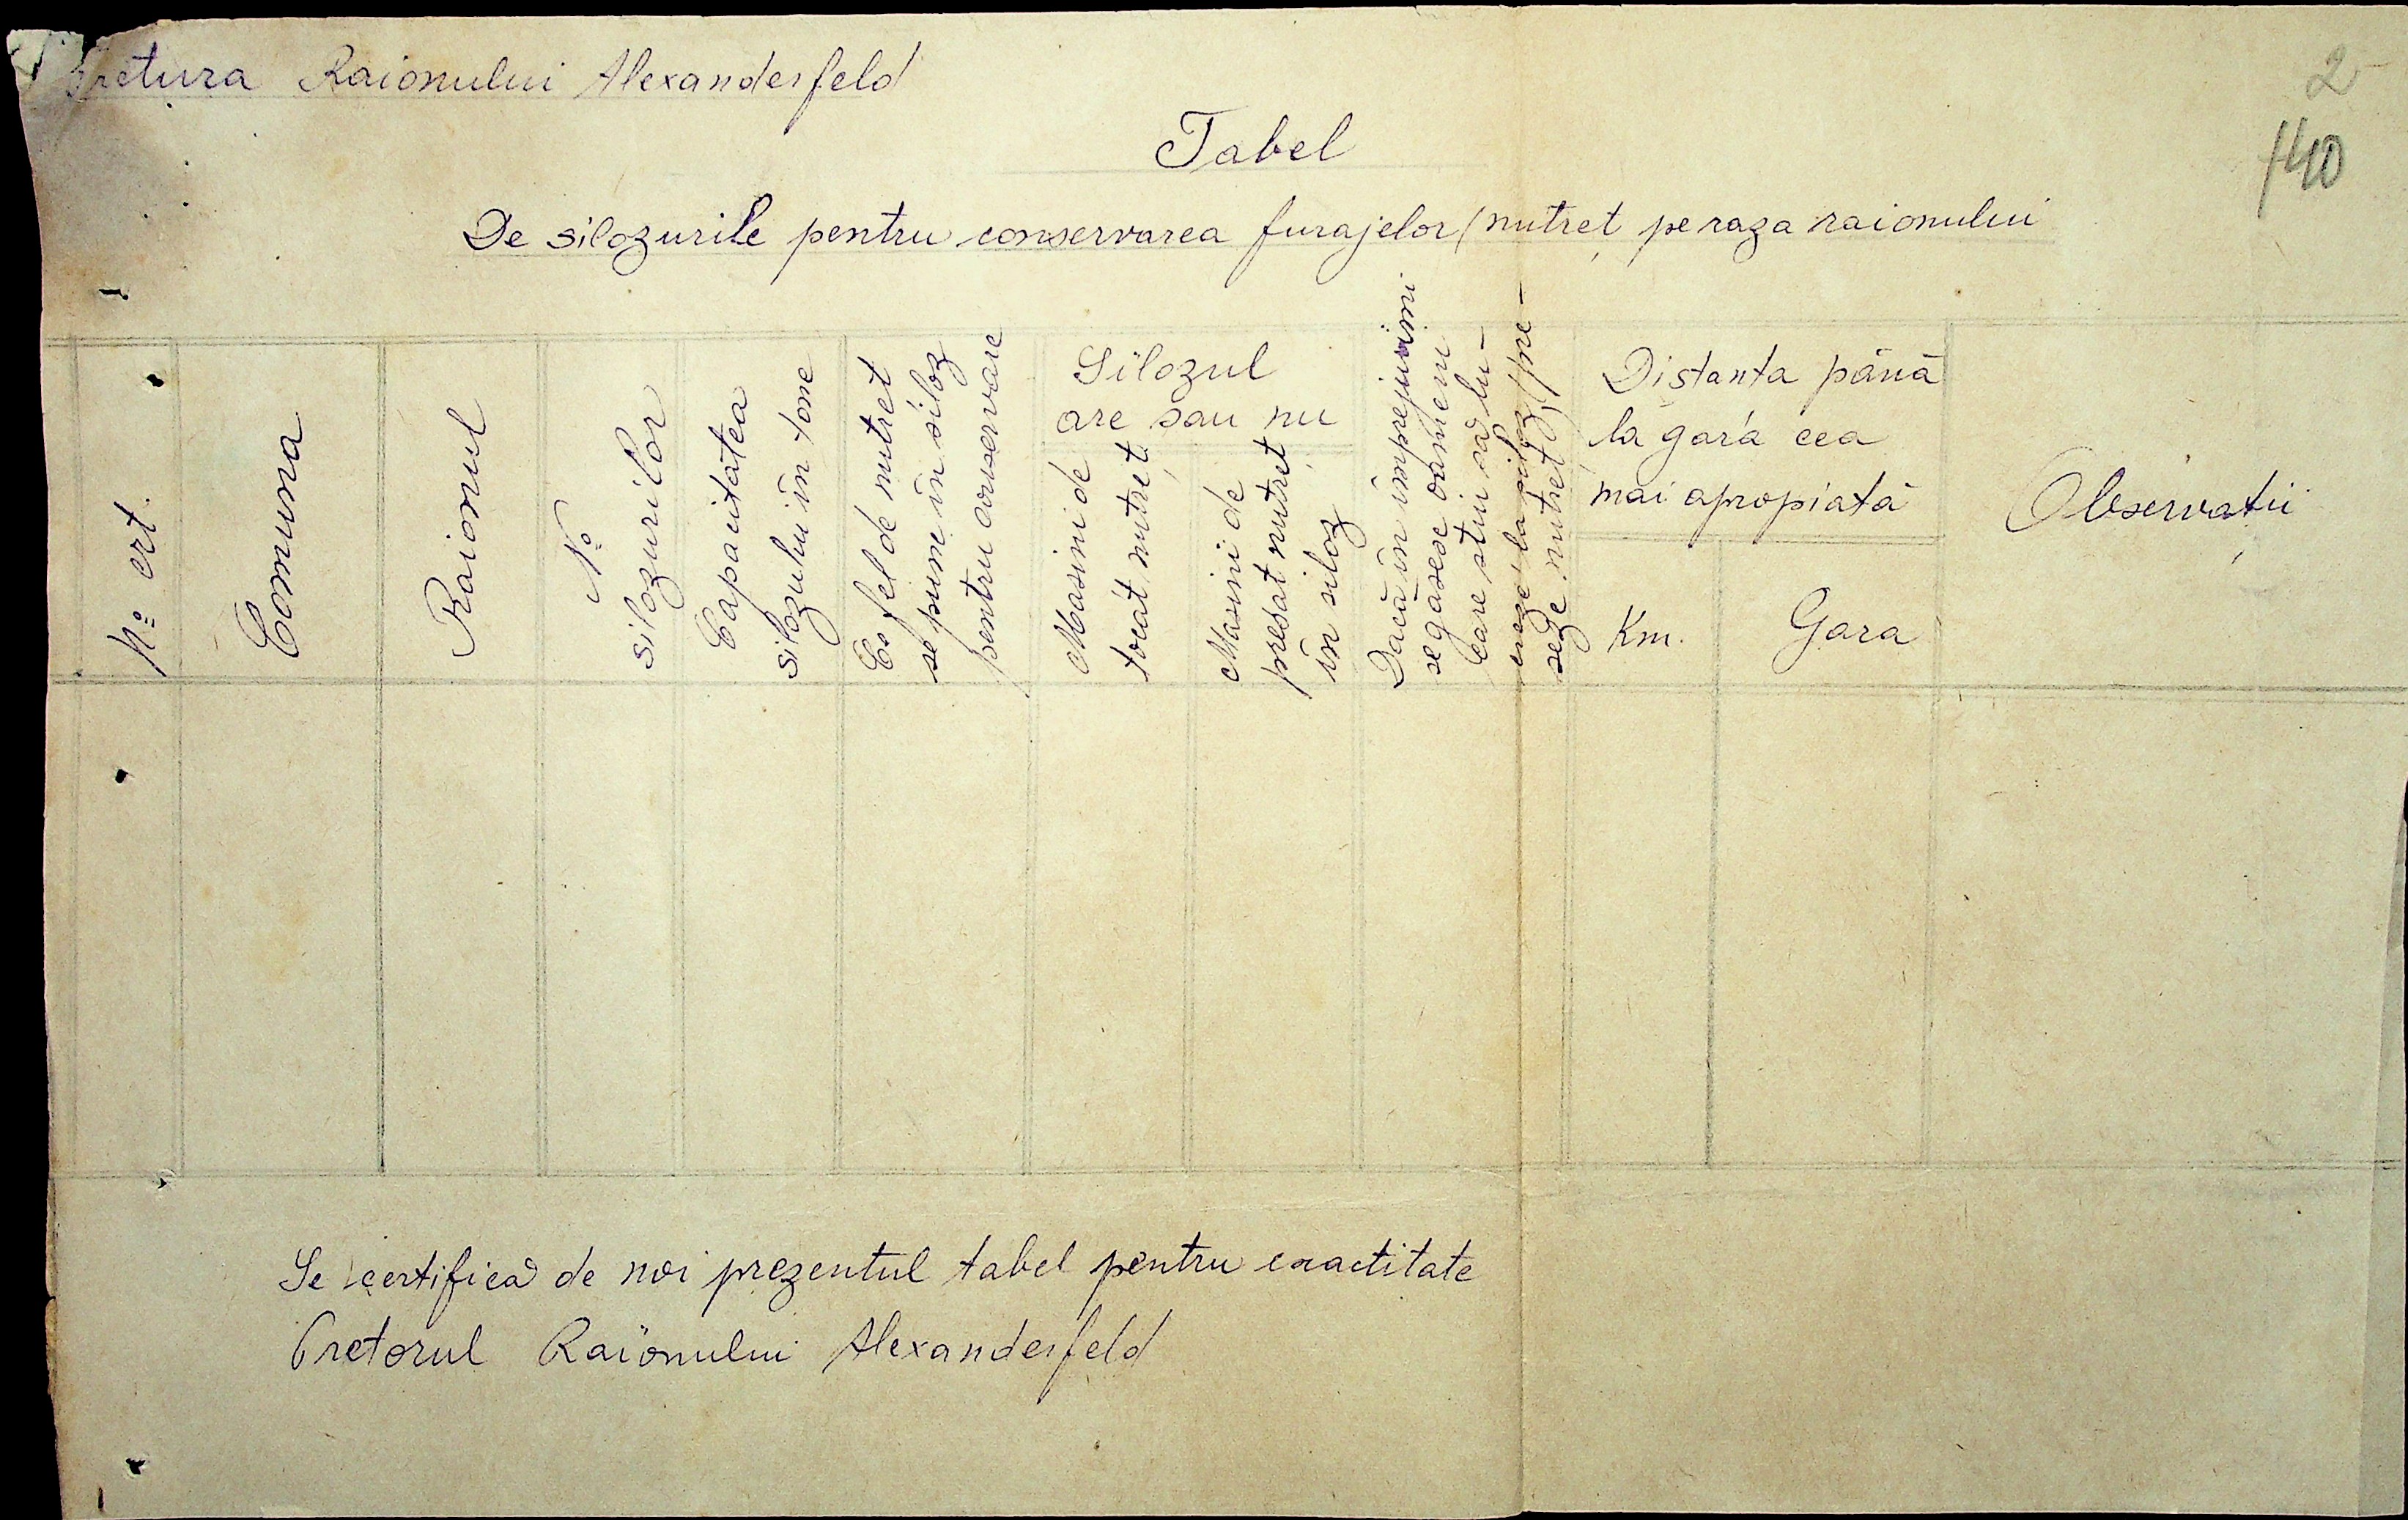 Pretura Raionului Alexanderfeld
2
140
Tabel
De silozurile pentru conservarea furajelor (nutreț pe raza raionului
No crt.
Comuna
Raionul
No
silozurilor
Capacitatea
silozului în tone
Ce fel de nutret
se pune în siloz
pentru conservare
Silozul
are sau nu
Masini de
tocat nutreț
Masini de
presat nutreț
în siloz
Dacă în împrejurimi
se găsesc oameni
care știu să lu-
creze la siloz (pre-
seze nutreț)
Distanta până
la gară cea
mai apropiată
Km.
Gara
Observații
Se certifică de noi prezentul tabel pentru exactitate
Pretorul Raionului Alexanderfeld